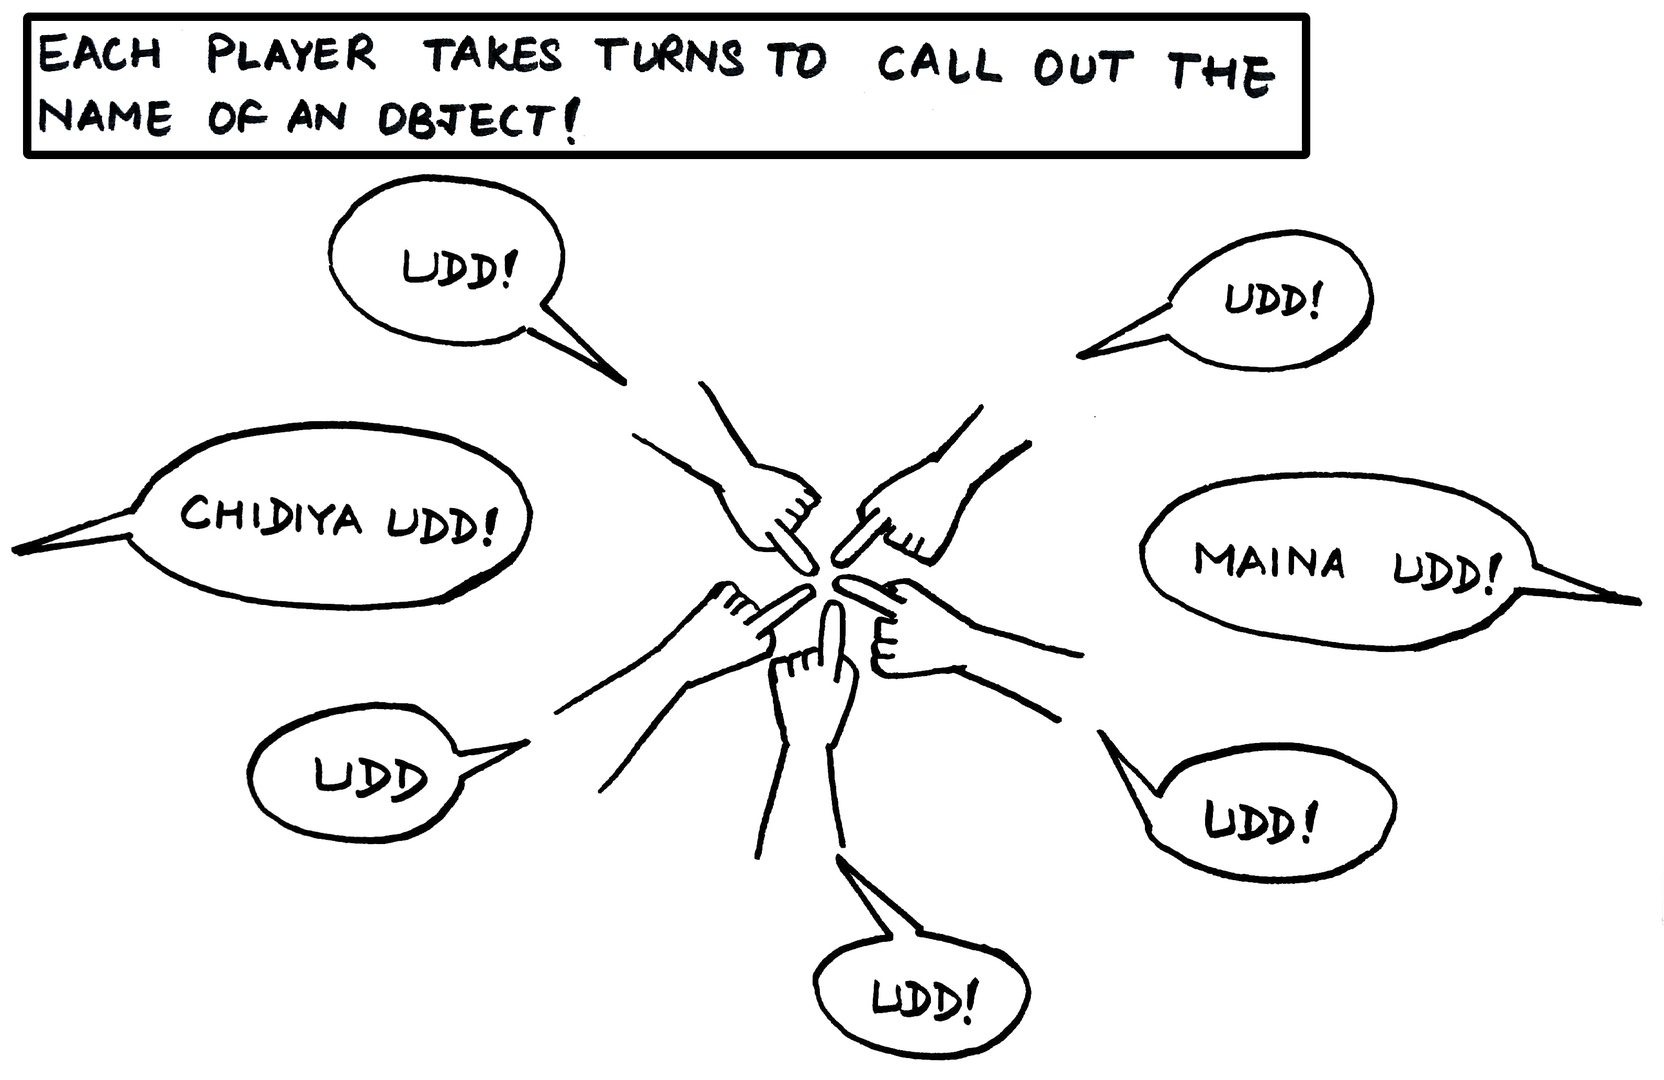 EACH PLAYER TAKES TURNS TO CALL OUT THE
NAME OF AN OBJECT!
UDD!
UDD!
CHIDIYA UDD!
MAINA UDD!
UDD
UDD!
UDD!